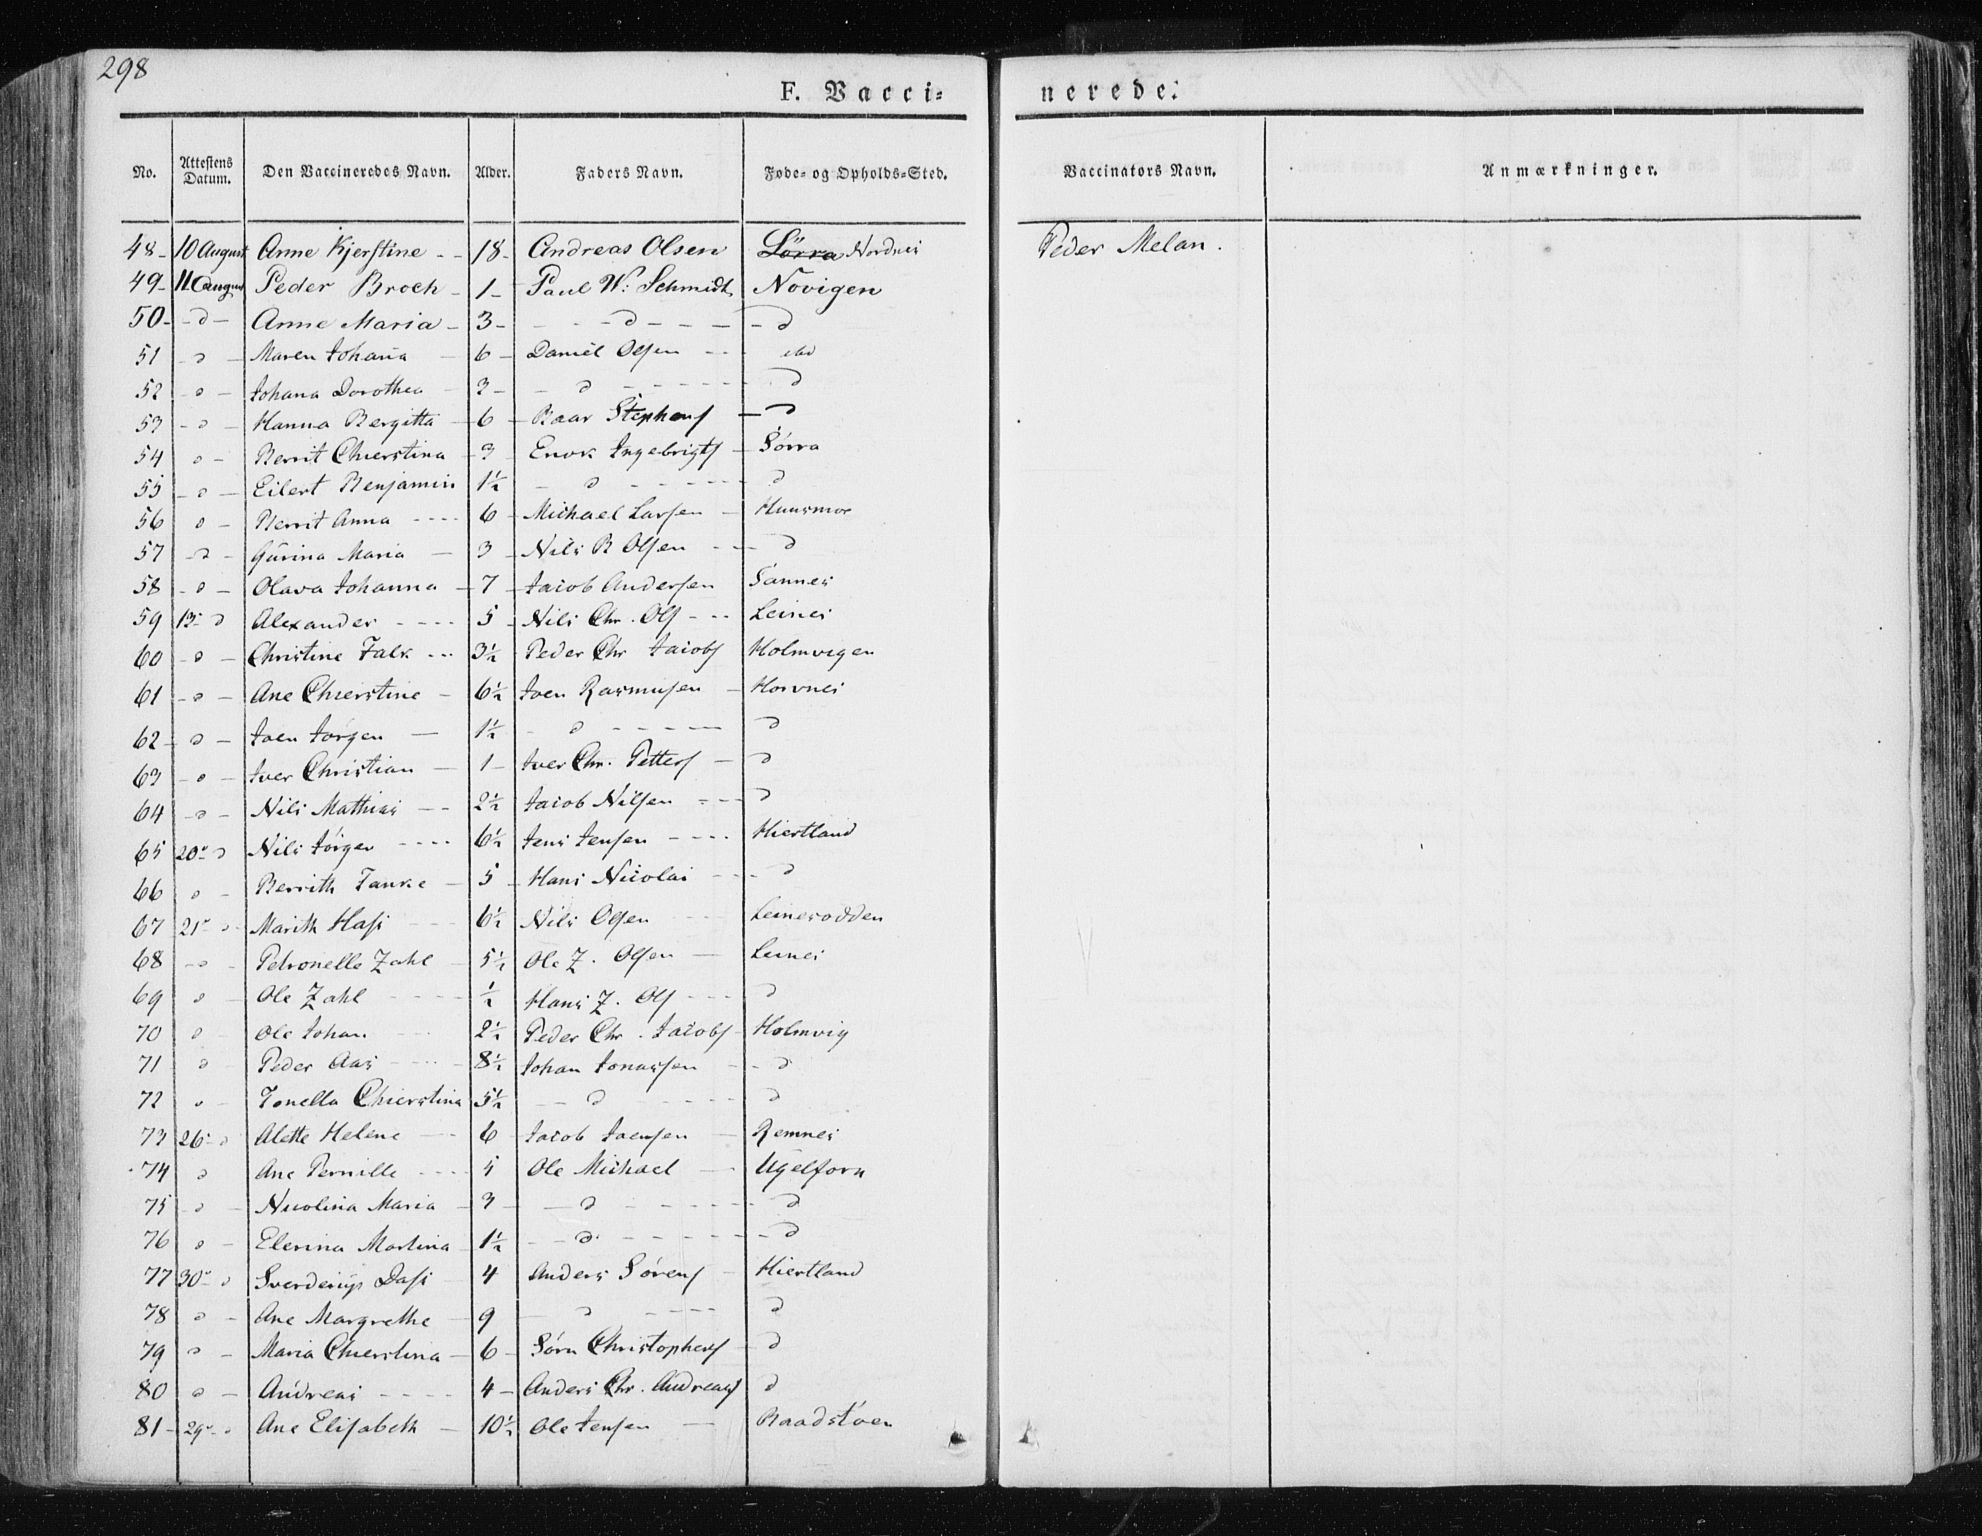 298
F. Vacci= nerede.
No. Attestens Datum. Den Vaccineredes Navn. Alder. Faders Navn. Føde- og Opholds-Sted. Vaccinators Navn. Anmærkninger.
48- 10 August Anne Kjerstine - - 18- Andreas Olsen Lörra Nordnes Peder Melan.
49- 11 August Peder Broch - 1- Paul W: Schmidt Novigen
50- - d - Anne Maria - 3- - - d - - - - d
51 - d - Maren Johana - 6 - Daniel Olsen - - -
52 - d - Johana Dorothea - 3 - - d - - - - d
53 - d - Hanna Bergitta - 6 - Baar Stephens - d
54 d - Berrit Chierstina - 3 - Enok Ingebrigts - Sørra
55 - d - Eilert Benjamin 1½ - d - - - - d
56 d - Berrit Anna - - - - 6 - Michael Larsen - Huusmoe
57 - d - Gurina Maria - 3 - Nils B Olsen - - - d
58 - d - Olava Johanna - 7 - Jacob Andersen Sannes
59 13 d Alexander - - - - 5 - Nils Chr. Ols - - - Leines
60 - d - Christine Falk - - - 3½ Peder Chr Jacobs Holmvigen
61 - d - Ane Chierstine - 6½ Joen Rasmusen -
62 - d - Joen Jørgen - 1½ - d - - - - - d
63 - d - Iver Christian - 1 - Iver Chr. Petters - d
64 - d - Nils Mathias - - 2½ Jacob Nilsen - - - d
65 20 d Nils Jørgen - - - - 6½ Jens Jensen - - - - Hiertland
66 d - Berrith Tanke - 5 - Hans Nicolai - - - d
67 21 d - Marith Hass - - - 6½ Nils Olsen - - - Leinesodden
68 - d - Petronelle Zahl - 5½ Ole Z. Olsen - Leines
69 d - Ole Zahl - - - - ½ Hans Z. Ols - - - d
70 d - Ole Johan - - - 2½ Peder Chr. Jacobs Holmvig
71 d - Peder Aas - - - - 8½ Johan Jonassen - - d
72 d - Jonella Chierstina 5½ - - d - - - - d
73 26 d Alette Helene - - 6 - Jacob Joensen - Remnes
74 d Ane Pernille - - - - 5 Ole Michael - Ugelforn
75 - d - Nicolina Maria - 3 - - d - - - - - - d
76 d - Elerina Martina 1½ - - d - - - - - - d
77 30 d Sverderups Dass - 4 Anders Sørens - Hiertland
78 d - Ane Margrethe - 9 - d - - - - d
79 d - Maria Chierstina - 6 - Sørn Christophers - d
80 d - Andreas - - - - 4 - Anders Chr. Andreas d
81 - 29 d Ane Elisabeth - 10½ Ole Jensen - Baadstøen